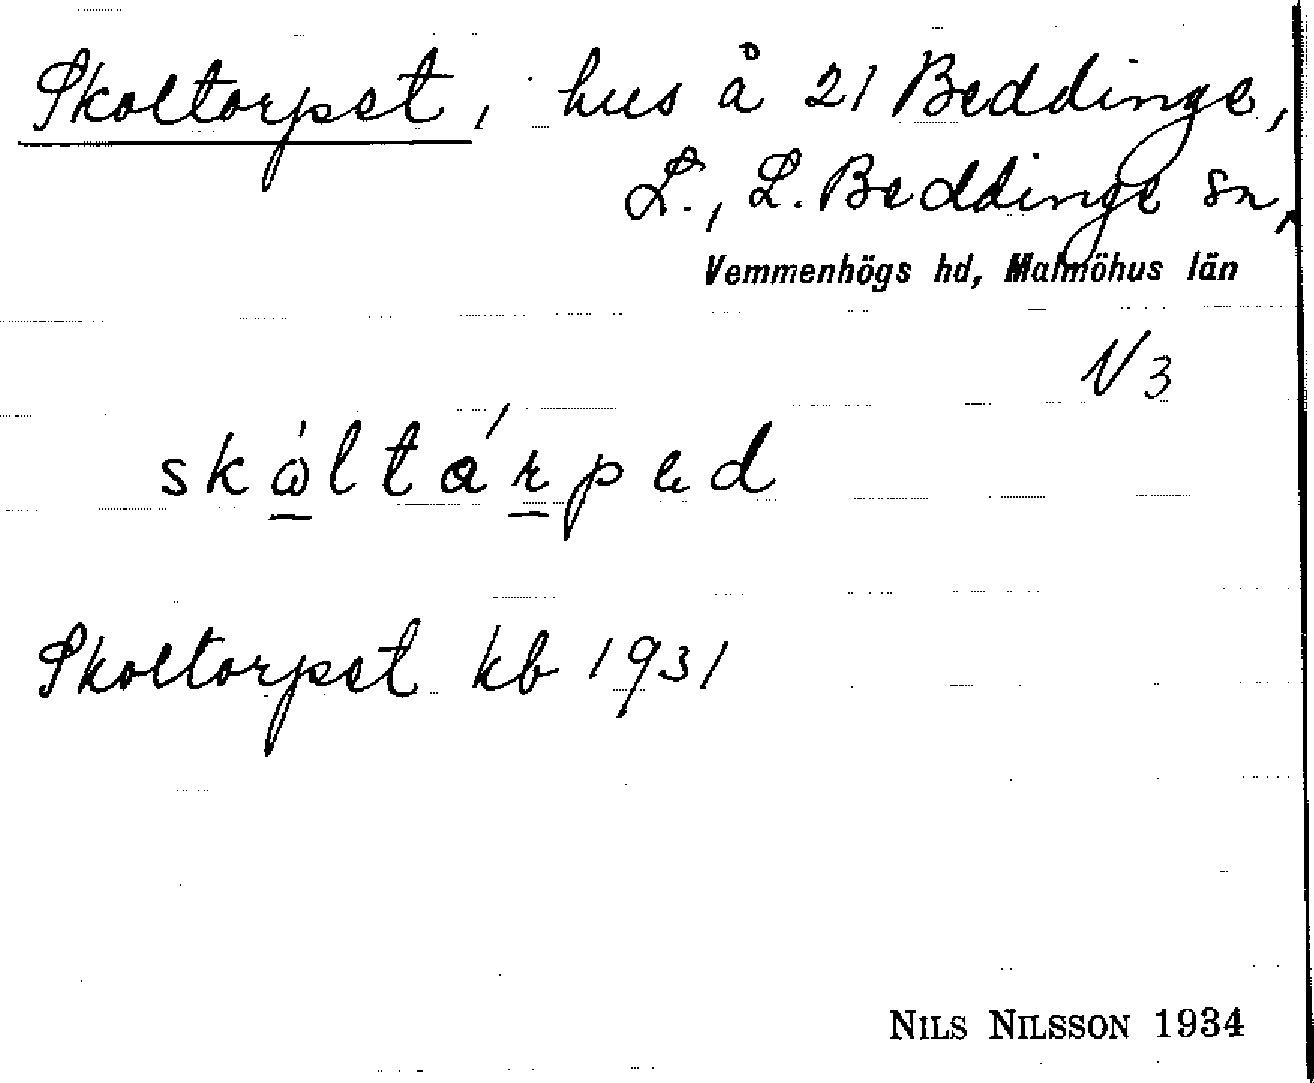 Skoltorpet, hus å 21 Beddinge,
L., L. Beddinge sn,
Vemmenhögs hd, Malmöhus län
V3
skòltárped
Skoltorpet kb 1931
NILS NILSSON 1934